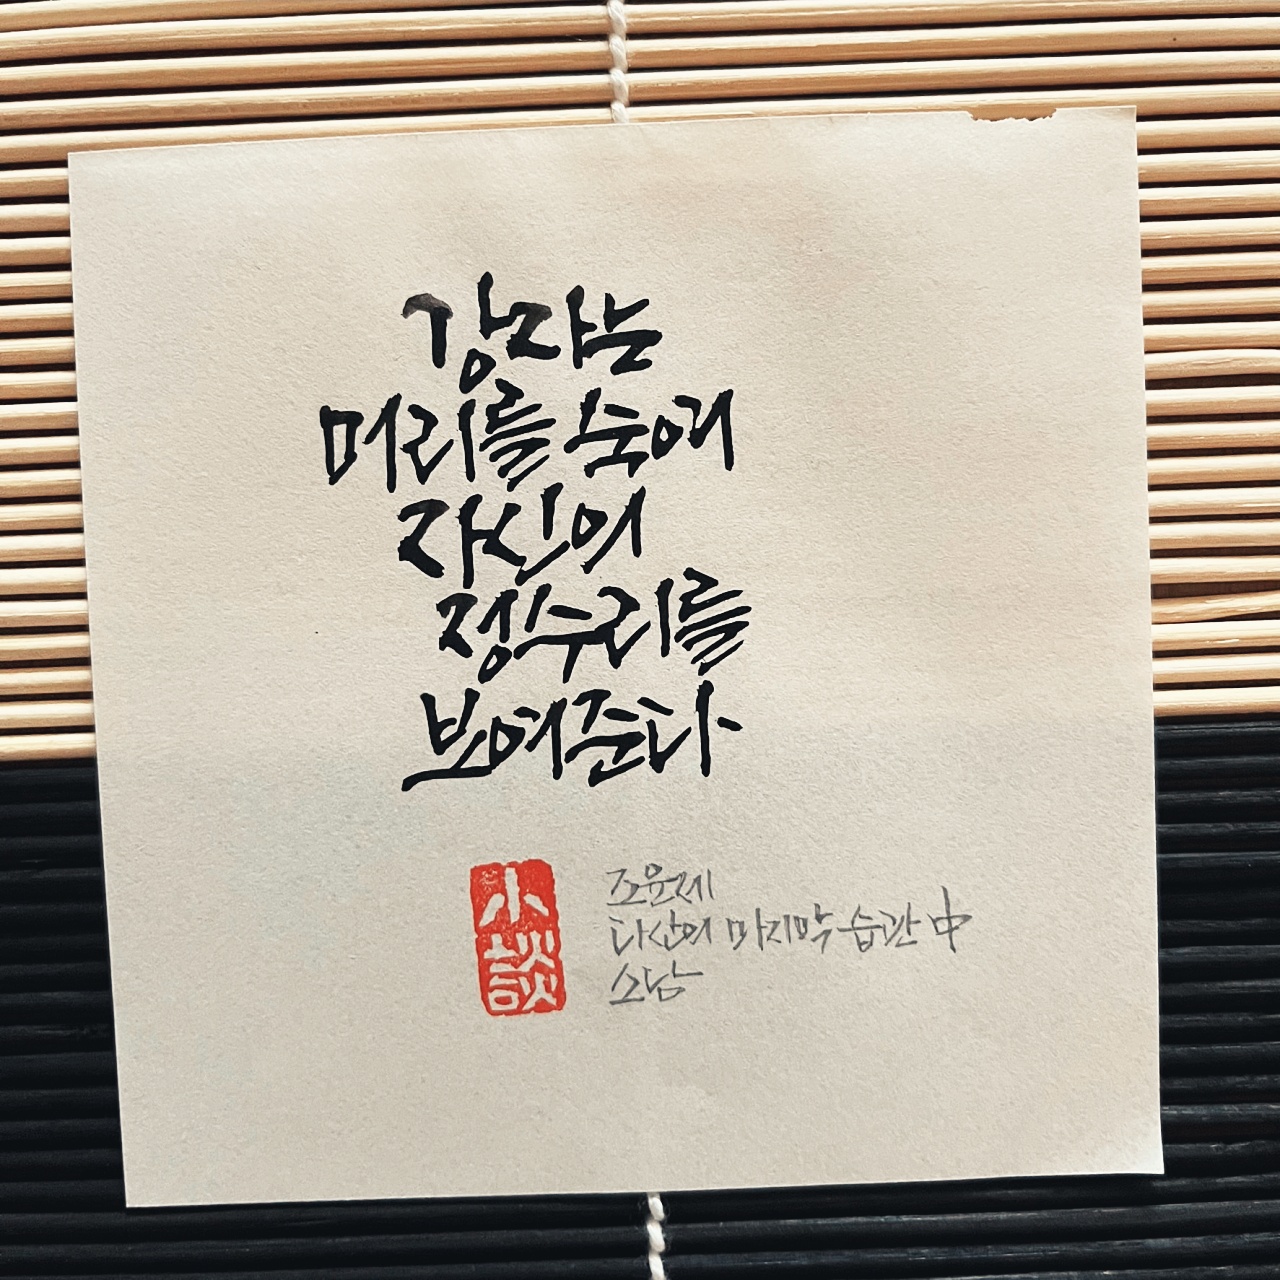 강자는
머리를 숙여
자신의
정수리를
보여준다
小談
조윤제
다산의 마지막 습관 中
소담